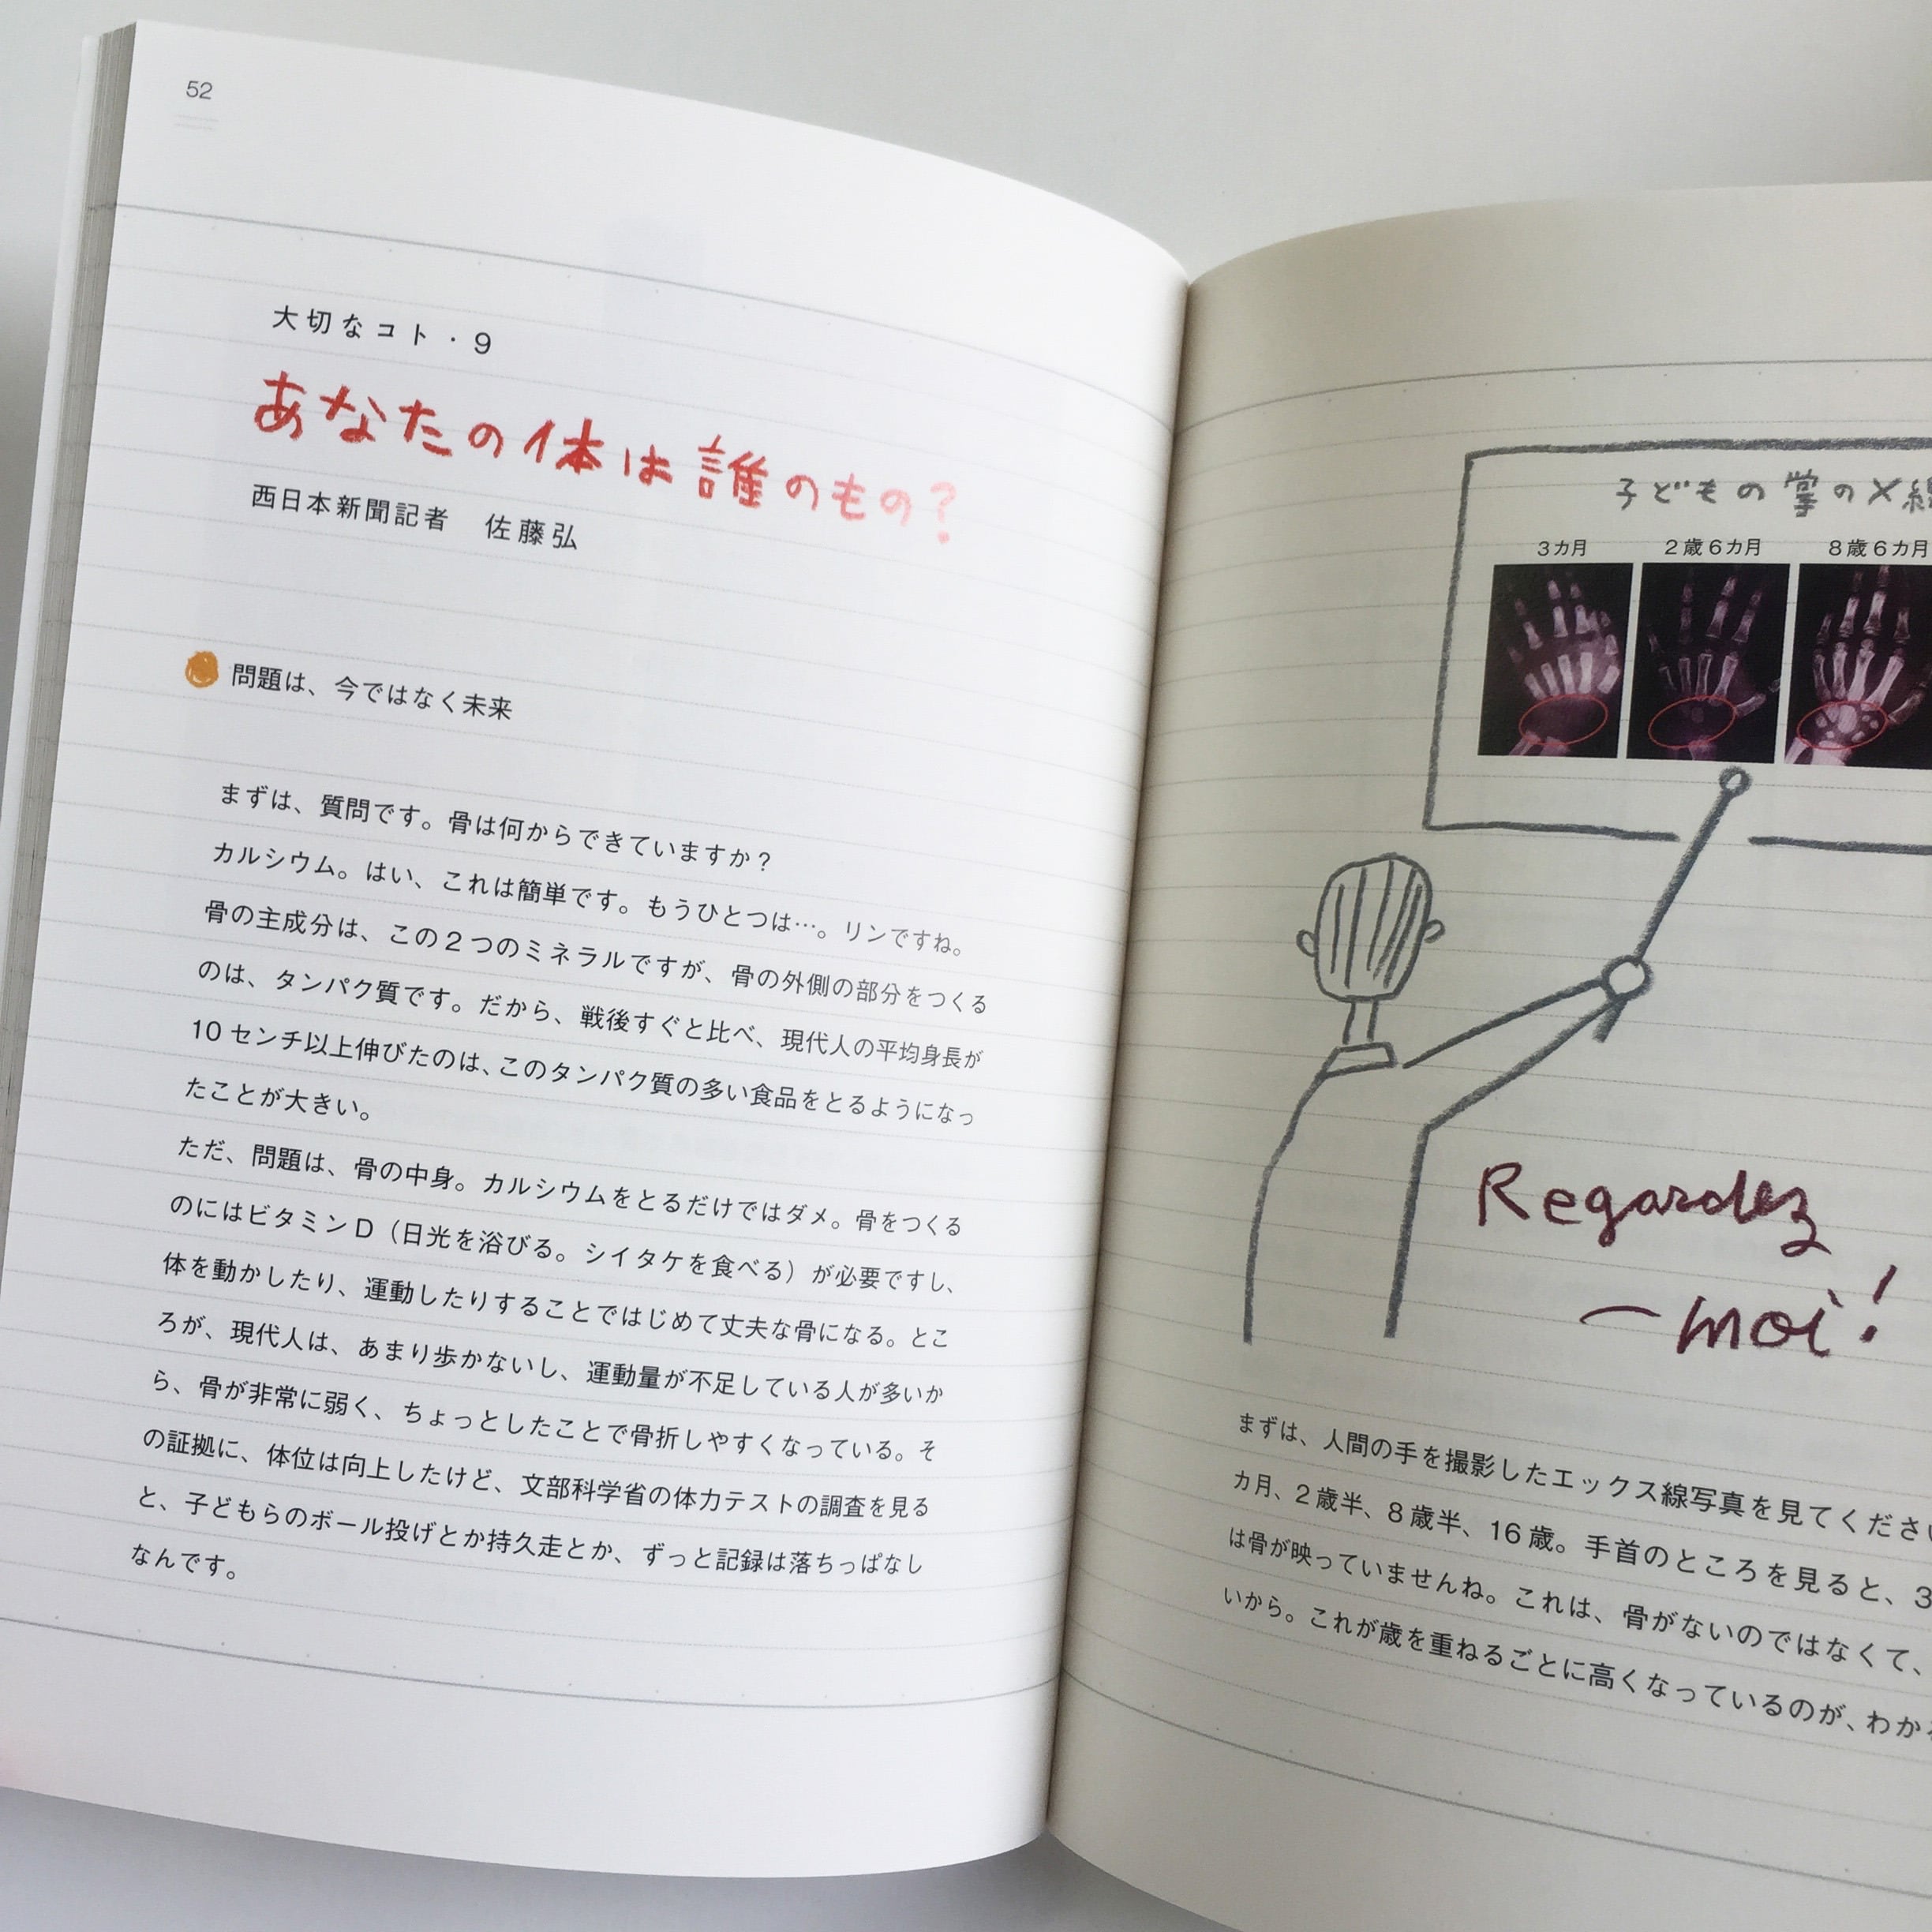 52
大切なコト・9
あなたの体は誰のもの？
西日本新聞記者　佐藤弘
問題は、今ではなく未来
まずは、質問です。骨は何からできていますか？
カルシウム。はい、これは簡単です。もうひとつは…。リンですね。
骨の主成分は、この２つのミネラルですが、骨の外側の部分をつくる
のは、タンパク質です。だから、戦後すぐと比べ、現代人の平均身長が
10 センチ以上伸びたのは、このタンパク質の多い食品をとるようになっ
たことが大きい。
ただ、問題は、骨の中身。カルシウムをとるだけではダメ。骨をつくる
のにはビタミンＤ（日光を浴びる。シイタケを食べる）が必要ですし、
体を動かしたり、運動したりすることではじめて丈夫な骨になる。とこ
ろが、現代人は、あまり歩かないし、運動量が不足している人が多いか
ら、骨が非常に弱く、ちょっとしたことで骨折しやすくなっている。そ
の証拠に、体位は向上したけど、文部科学省の体力テストの調査を見る
と、子どもらのボール投げとか持久走とか、ずっと記録は落ちっぱなし
なんです。
子どもの掌のX線
3カ月
2歳6カ月
8歳6カ月
Regardez
-moi!
まずは、人間の手を撮影したエックス線写真を見てください
カ月、２歳半、８歳半、16 歳。手首のところを見ると、3
は骨が映っていませんね。これは、骨がないのではなくて、
いから。これが歳を重ねるごとに高くなっているのが、わか